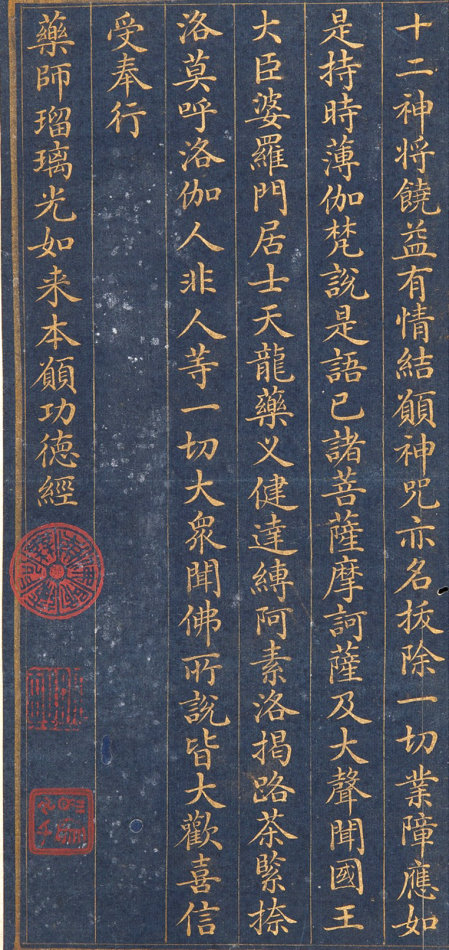 十二神将饒益有情結願神咒亦名拔除一切業障應如
是持時薄伽梵說是語已諸菩薩摩訶薩及大聲聞國王
大臣婆羅門居士天龍藥义健達縛阿素洛揭路荼緊捺
洛莫呼洛伽人非人等一切大衆聞佛所說皆大歡喜信
受奉行
藥師瑠璃光如来本願功德經